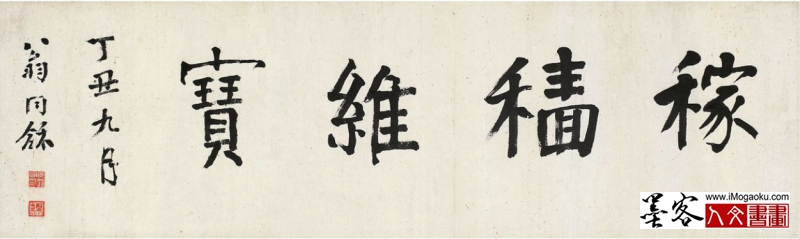 稼穡維寶
丁丑九月
翁同龢
www.iMogaoku.com
墨客人文書畫